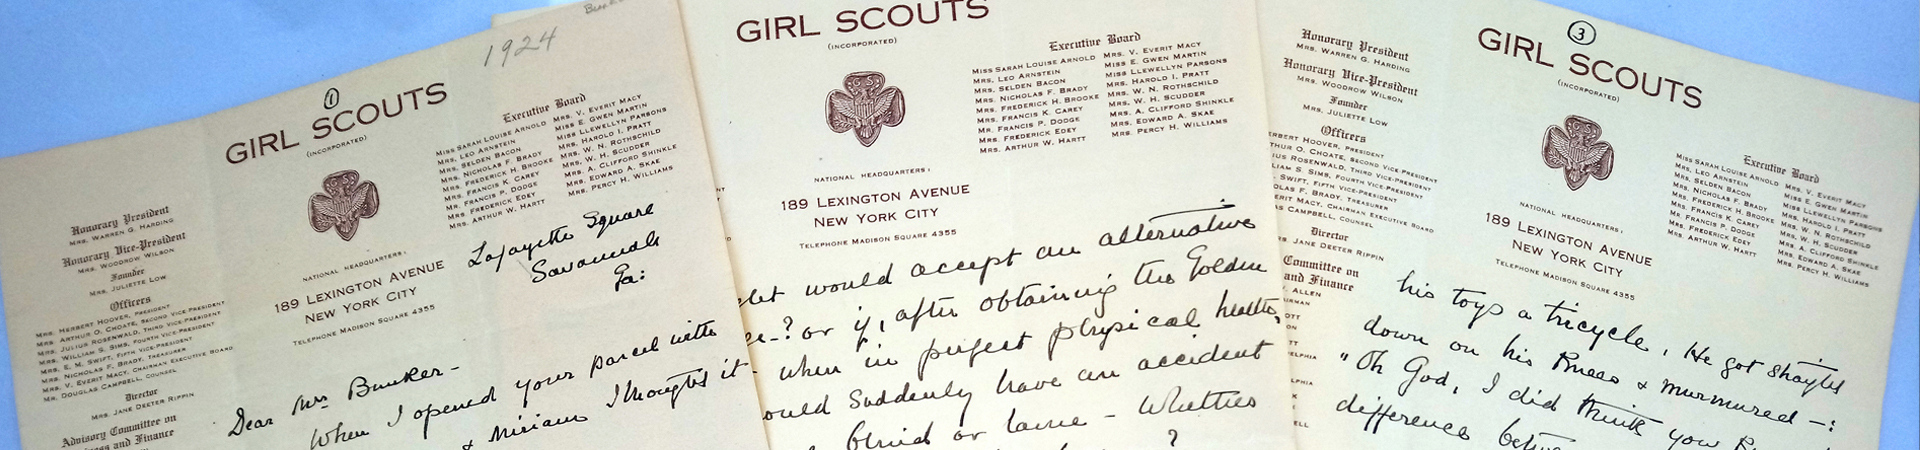 1924
①
GIRL SCOUTS
(INCORPORATED)
Executive Board
MISS SARAH LOUISE ARNOLD
MRS. LEO ARNSTEIN
MRS. SELDEN BACON
MRS. NICHOLAS F. BRADY
MRS. FREDERICK H. BROOKE
MRS. FRANCIS K. CAREY
MR. FRANCIS P. DODGE
MRS. FREDERICK EDEY
MRS. ARTHUR W. HARTT
MRS. V. EVERIT MACY
MISS E. GWEN MARTIN
MISS LLEWELLYN PARSONS
MRS. HAROLD I. PRATT
MRS. W. N. ROTHSCHILD
MRS. W. H. SCUDDER
MRS. A. CLIFFORD SHINKLE
MRS. EDWARD A. SKAE
MRS. PERCY H. WILLIAMS
Honorary President
MRS. WARREN G. HARDING
Honorary Vice-President
MRS. WOODROW WILSON
Founder
MRS. JULIETTE LOW
Officers
MRS. HERBERT HOOVER, PRESIDENT
MRS. ARTHUR O. CHOATE, SECOND VICE-PRESIDENT
MRS. JULIUS ROSENWALD, THIRD VICE-PRESIDENT
MRS. WILLIAM S. SIMS, FOURTH VICE-PRESIDENT
MRS. E. M. SWIFT, FIFTH VICE-PRESIDENT
MRS. NICHOLAS F. BRADY, TREASURER
MRS. V. EVERIT MACY, CHAIRMAN EXECUTIVE BOARD
MR. DOUGLAS CAMPBELL, COUNSEL
Director
MRS. JANE DEETER RIPPIN
Advisory Committee on
ess and Finance
NATIONAL HEADQUARTERS,
189 LEXINGTON AVENUE
NEW YORK CITY
TELEPHONE MADISON SQUARE 4355
Lafayette Square
Savannah
Ga:
Dear Mrs Bunker-
When I opened your parcel with
& Miriam I thought it
GIRL SCOUTS
(INCORPORATED)
Executive Board
MISS SARAH LOUISE ARNOLD
MRS. LEO ARNSTEIN
MRS. SELDEN BACON
MRS. NICHOLAS F. BRADY
MRS. FREDERICK H. BROOKE
MRS. FRANCIS K. CAREY
MR. FRANCIS P. DODGE
MRS. FREDERICK EDEY
MRS. ARTHUR W. HARTT
MRS. V. EVERIT MACY
MISS E. GWEN MARTIN
MISS LLEWELLYN PARSONS
MRS. HAROLD I. PRATT
MRS. W. N. ROTHSCHILD
MRS. W. H. SCUDDER
MRS. A. CLIFFORD SHINKLE
MRS. EDWARD A. SKAE
MRS. PERCY H. WILLIAMS
NATIONAL HEADQUARTERS,
189 LEXINGTON AVENUE
NEW YORK CITY
TELEPHONE MADISON SQUARE 4355
would accept an alternative
? or if, after obtaining the Golden
when in perfect physical health,
ould suddenly have an accident
blind or lame - Whether
?
③
GIRL SCOUTS
(INCORPORATED)
Honorary President
MRS. WARREN G. HARDING
Honorary Vice-President
MRS. WOODROW WILSON
Founder
MRS. JULIETTE LOW
Officers
ERBERT HOOVER, PRESIDENT
THUR O. CHOATE, SECOND VICE-PRESIDENT
IUS ROSENWALD, THIRD VICE-PRESIDENT
LIAM S. SIMS, FOURTH VICE-PRESIDENT
SWIFT, FIFTH VICE-PRESIDENT
OLAS F. BRADY, TREASURER
ERIT MACY, CHAIRMAN EXECUTIVE BOARD
AS CAMPBELL, COUNSEL
Director
S. JANE DEETER RIPPIN
Committee on
and Finance
ALLEN
Executive Board
MISS SARAH LOUISE ARNOLD
MRS. LEO ARNSTEIN
MRS. SELDEN BACON
MRS. NICHOLAS F. BRADY
MRS. FREDERICK H. BROOKE
MRS. FRANCIS K. CAREY
MR. FRANCIS P. DODGE
MRS. FREDERICK EDEY
MRS. ARTHUR W. HARTT
MRS. V. EVERIT MACY
MISS E. GWEN MARTIN
MISS LLEWELLYN PARSONS
MRS. HAROLD I. PRATT
MRS. W. N. ROTHSCHILD
MRS. W. H. SCUDDER
MRS. A. CLIFFORD SHINKLE
MRS. EDWARD A. SKAE
MRS. PERCY H. WILLIAMS
NATIONAL HEADQUARTERS,
189 LEXINGTON AVENUE
NEW YORK CITY
TELEPHONE MADISON SQUARE 4355
his toys a tricycle, He got straight
down on his Knees & murmured -:
"Oh God, I did think you
difference